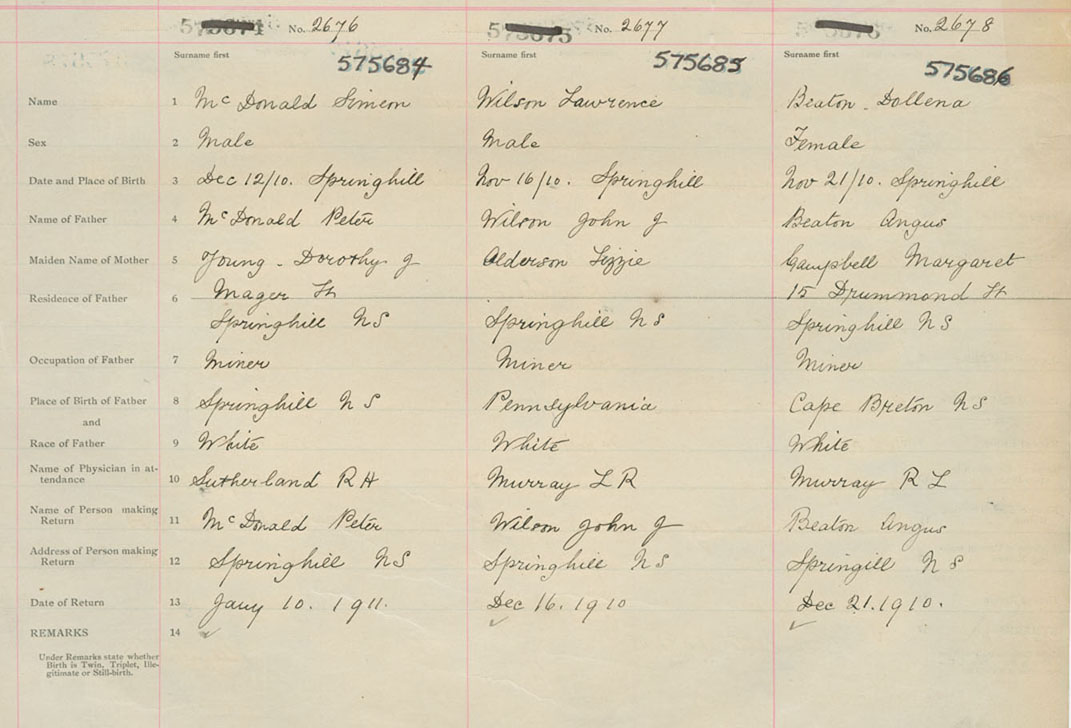 No. 2676 No. 2677 No. 2678
Surname first Surname first Surname first
575684 575685 575686
Name 1 McDonald Simeon Wilson Lawrence Beaton Dollena
Sex 2 Male Male Female
Date and Place of Birth 3 Dec 12/10. Springhill Nov 16/10. Springhill Nov 21/10. Springhill
Name of Father 4 McDonald Peter Wilson John J Beaton Angus
Maiden Name of Mother 5 Young - Dorothy J Alderson Lizzie Campbell Margaret
Residence of Father 6 Mager St 15 Drummond St
Springhill N S Springhill N S Springhill N S
Occupation of Father 7 Miner Miner Miner
Place of Birth of Father 8 Springhill N S Pennsylvania Cape Breton N S
and
Race of Father 9 White White White
Name of Physician in at-
tendance 10 Sutherland R H Murray L R Murray R L
Name of Person making
Return 11 McDonald Peter Wilson John J Beaton Angus
Address of Person making
Return 12 Springhill N S Springhill N S Springill N S
Date of Return 13 Jany 10. 1911. Dec 16. 1910 Dec 21. 1910.
REMARKS 14
Under Remarks state whether
Birth is Twin, Triplet, Ille-
gitimate or Still-birth.